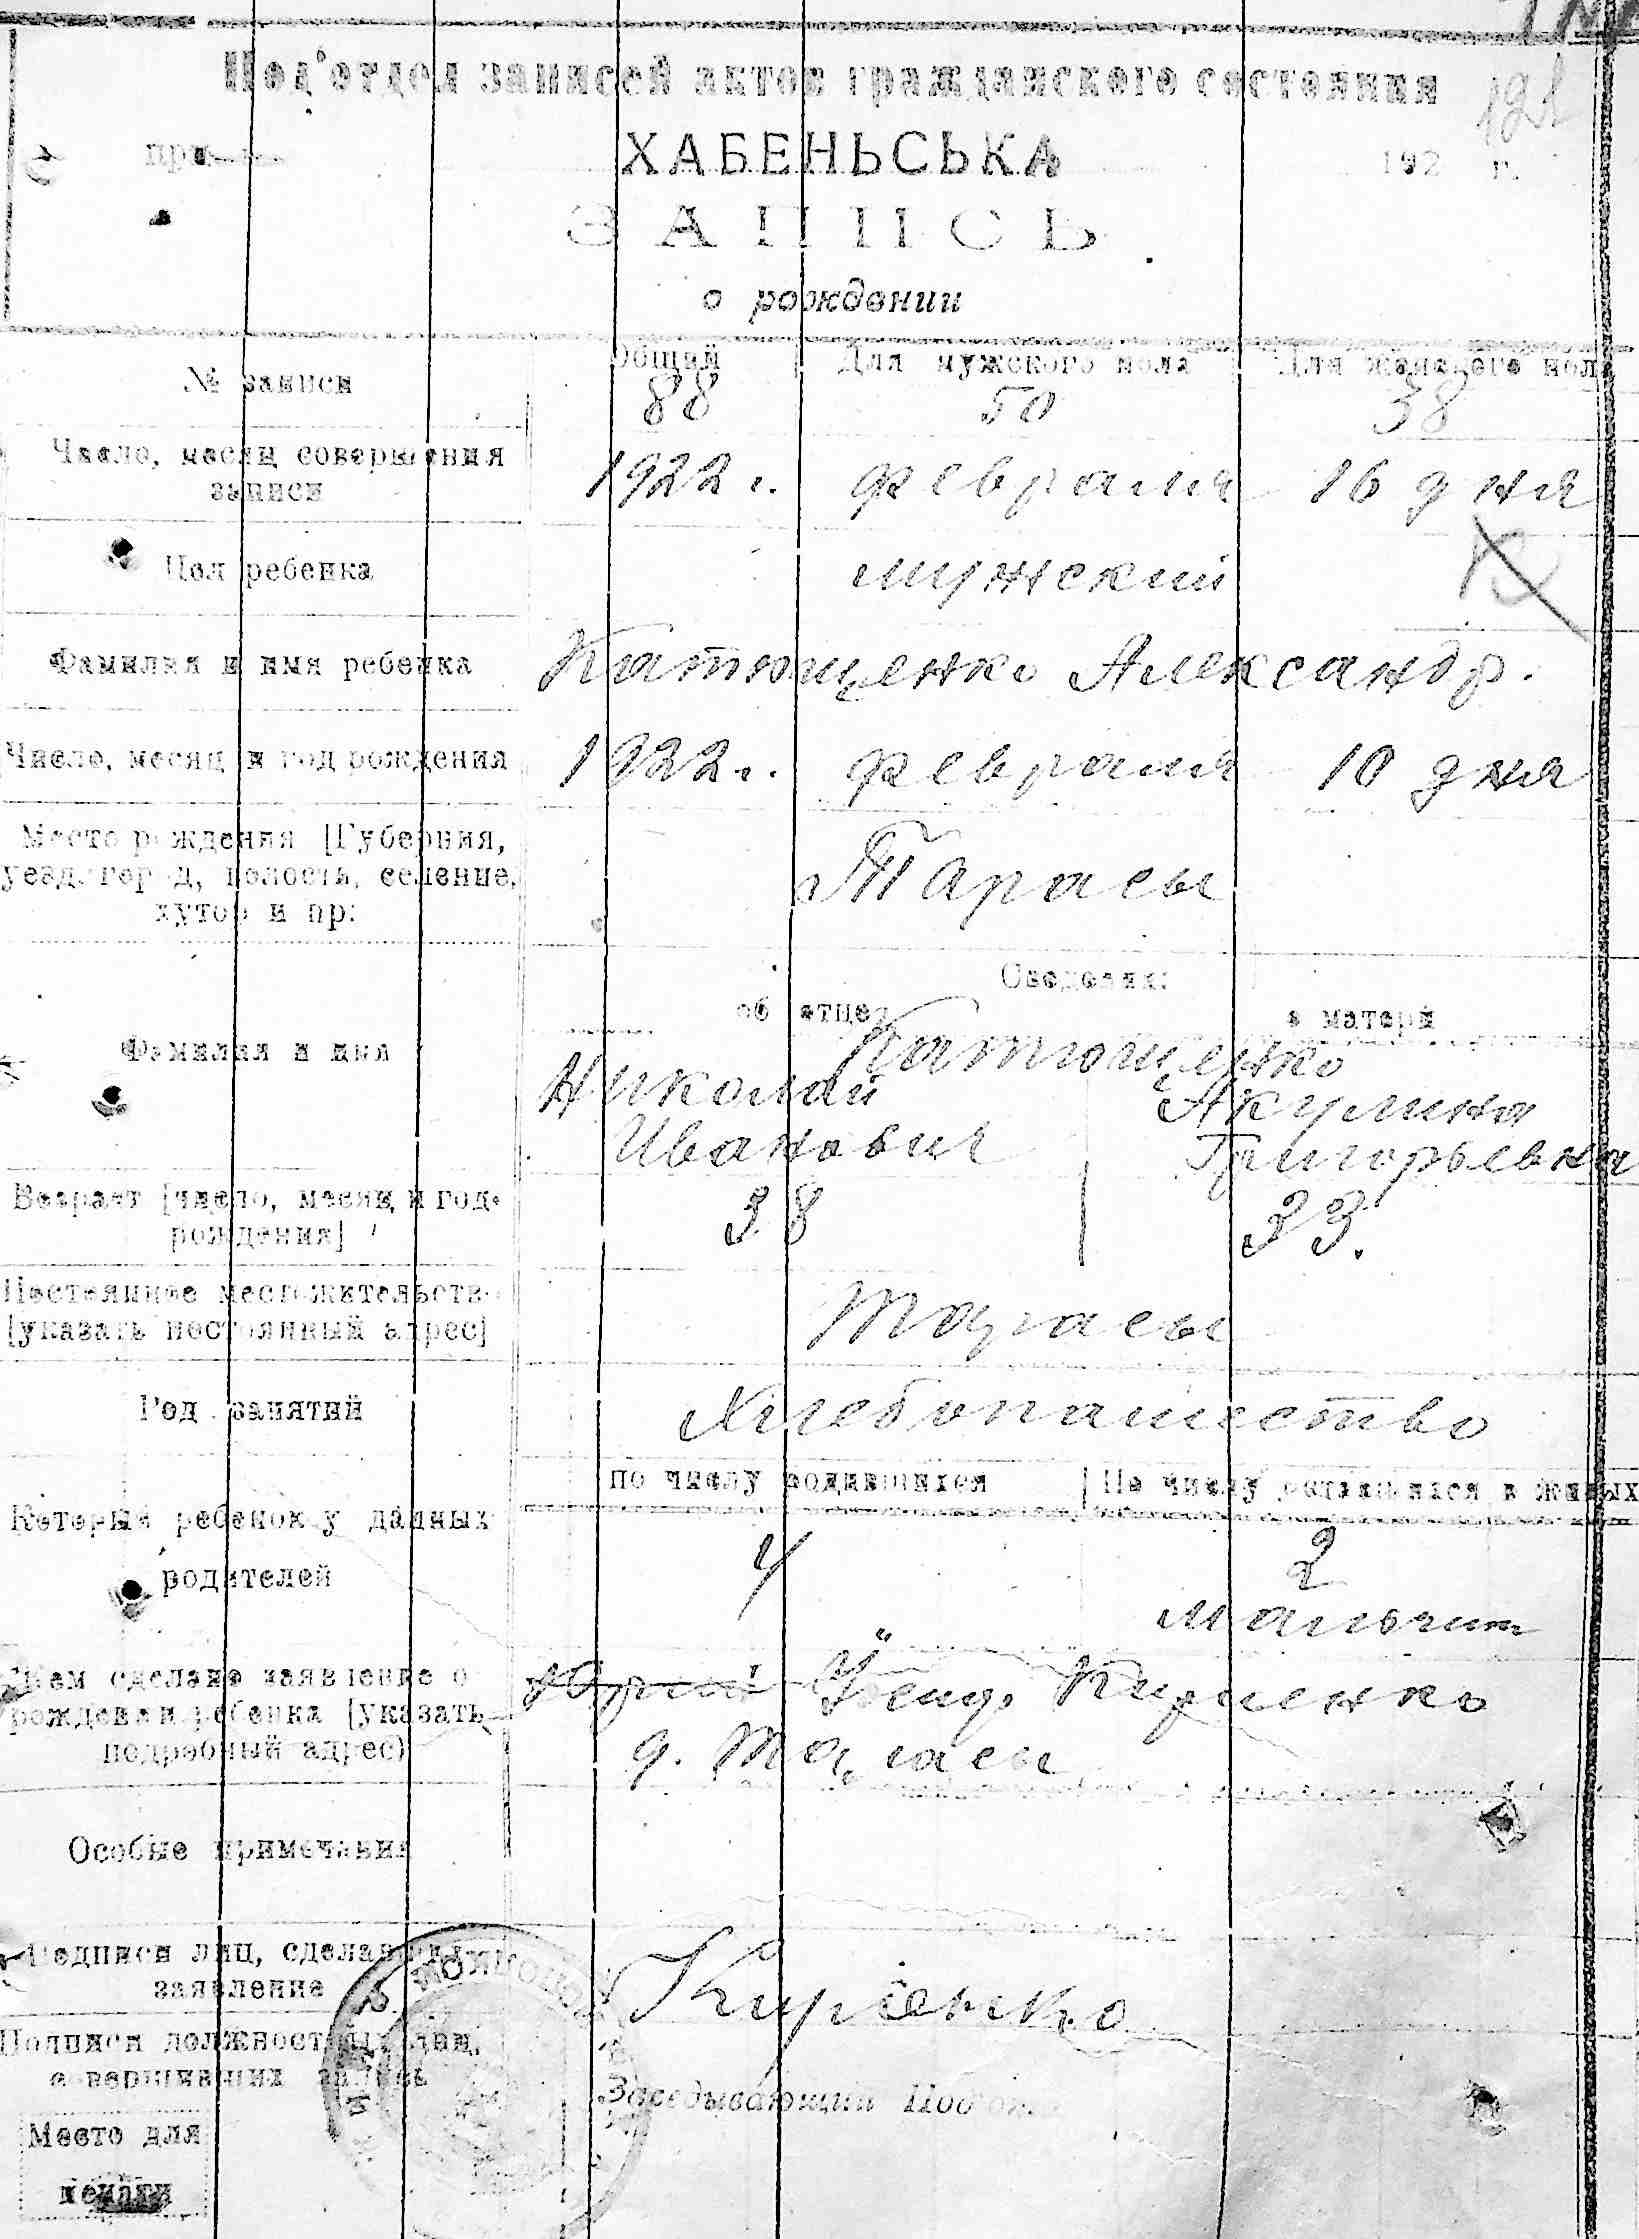 Под'отдел записей актов гражданского состояния
121
при
ХАБЕНЬСЬКА
192 г.
ЗАПИСЬ
о рождении
№ записи
Общий
Для мужского пола
Для женского пола
88
50
38
Число, месяц совершения
записи
1922 г. февраля 16 дня
Пол ребенка
мужский
Фамилия и имя ребенка
Катющенко Александр.
Число, месяц и год рождения
1922 г. февраля 10 дня
Место рождения [Губерния,
уезд, город, волость, селение,
хутор и пр:
Тарасы
Сведения:
об отце
о матери
Фамилия и имя
Катющенко
Николай
Акулина
Иванович
Григорьевна
Возраст [число, месяц и год
рождения]
38
33.
Постоянное местожительство
[указать постоянный адрес]
Тарасы
Род занятий
Хлебопашество
по числу родившихся
По числу оставшихся в живых
Который ребенок у данных
родителей
4
2
мальчик
Кем сделано заявление о
рождении ребенка [указать
подробный адрес)
Кириенко
д. Тарасы
Особые примечания
Подписи лиц, сделавших
заявление
Кириенко
Подписи должностных лиц,
совершивших запись
Заведывающий Подот.
Место для
печати